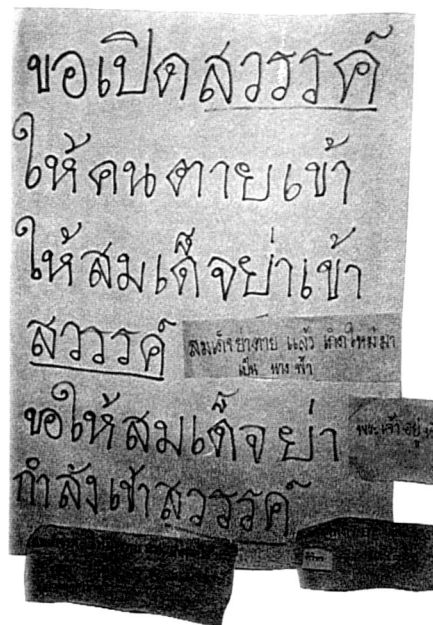 ขอเปิดสวรรค์
ให้คนตายเข้า
ให้สมเด็จย่าเข้า
สวรรค์
สมเด็จย่าตาย แล้ว เกิดใหม่มา
เป็น นางฟ้า
ขอให้สมเด็จย่า
พระเจ้าอยู่
กำลังเข้าสวรรค์